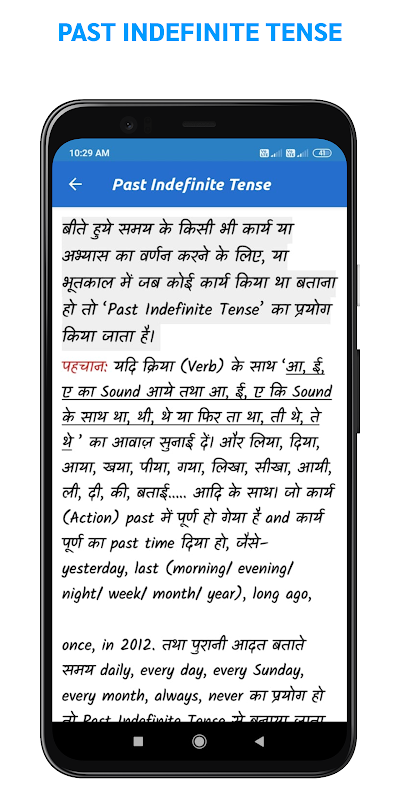 PAST INDEFINITE TENSE
10:29 AM
43
Past Indefinite Tense
बीते हुये समय के किसी भी कार्य या
अभ्यास का वर्णन करने के लिए, या
भूतकाल में जब कोई कार्य किया था बताना
हो तो ‘Past Indefinite Tense’ का प्रयोग
किया जाता है।
पहचान: यदि क्रिया (Verb) के साथ ‘आ, ई,
ए का Sound आये तथा आ, ई, ए कि Sound
के साथ था, थी, थे या फिर ता था, ती थे, ते
थे ’ का आवाज़ सुनाई दें। और लिया, दिया,
आया, खया, पीया, गया, लिखा, सीखा, आयी,
ली, दी, की, बताई..... आदि के साथ। जो कार्य
(Action) past में पूर्ण हो गेया है and कार्य
पूर्ण का past time दिया हो, जैसे–
yesterday, last (morning/ evening/
night/ week/ month/ year), long ago,
once, in 2012. तथा पुरानी आदत बताते
समय daily, every day, every Sunday,
every month, always, never का प्रयोग हो
तो Past Indefinite Tense से बनाया जाता